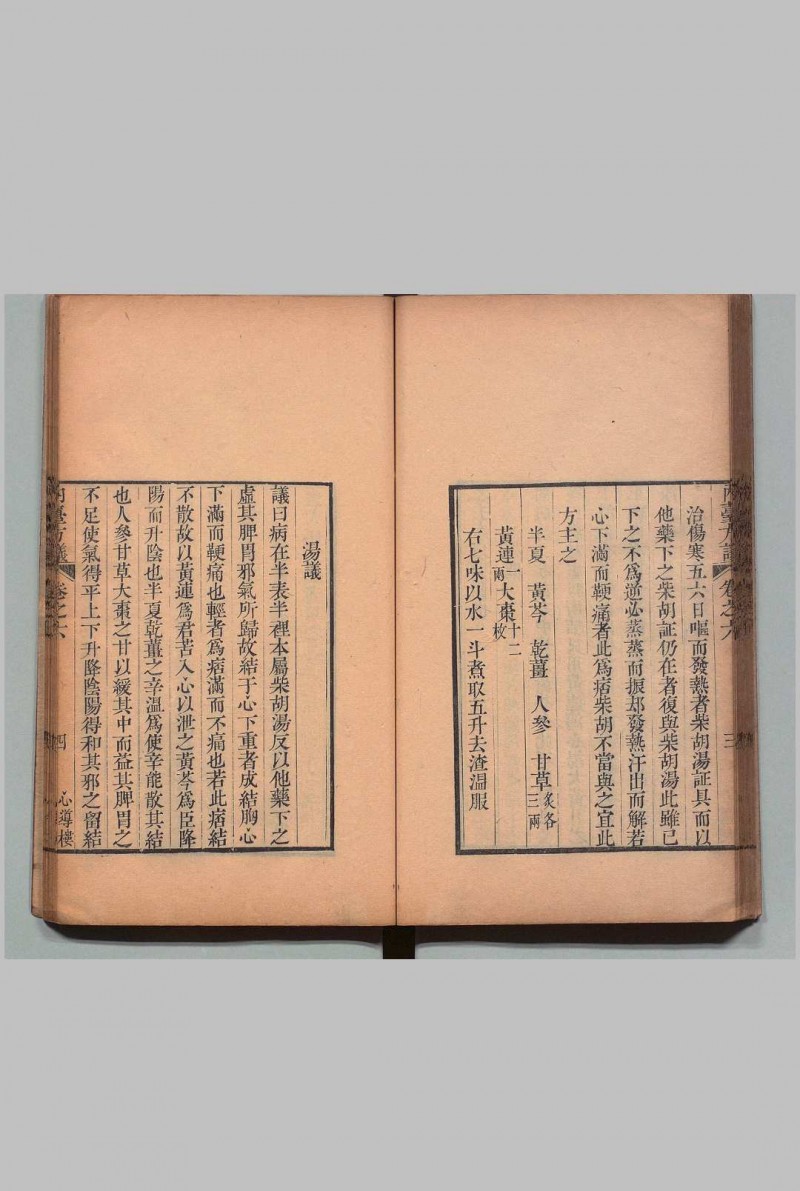 治傷寒五六日嘔而發熱者柴胡湯証具而以
他藥下之柴胡証仍在者復與柴胡湯此雖已
下之不爲逆必蒸蒸而振却發熱汗出而解若
心下滿而鞕痛者此爲痞柴胡不當與之宜此
方主之
半夏 黃芩 乾薑 人參 甘草炙各三兩
黃連一兩 大棗十二枚
右七味以水一斗煮取五升去渣溫服
湯議
議曰病在半表半裡本屬柴胡湯反以他藥下之
虛其脾胃邪氣所歸故結于心下重者成結胸心
下滿而鞕痛也輕者爲痞滿而不痛也若此痞結
不散故以黃連爲君苦入心以泄之黃芩爲臣降
陽而升陰也半夏乾薑之辛溫爲使辛能散其結
也人參甘草大棗之甘以緩其中而益其脾胃之
不足使氣得平上下升降陰陽得和其邪之留結
內臺方議 卷之六 四 心導樓